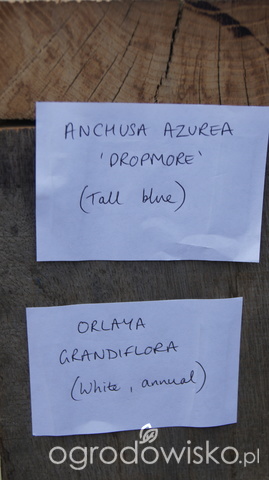 ANCHUSA AZUREA
'DROPMORE'
(Tall blue)
ORLAYA
GRANDIFLORA
(White, annual)
ogrodowisko.pl